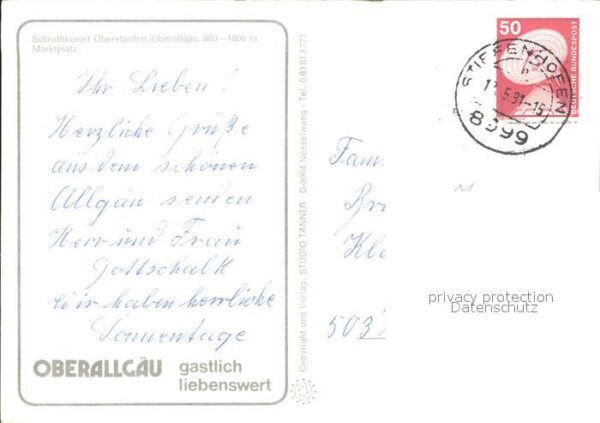 Schrothkurort Oberstaufen/Oberallgäu, 800—1800 m
Marktplatz
Ihr Lieben!
Herzliche Grüße
aus dem schönen
Allgäu senden
Herr und Frau
Gottschalk
wir haben herrliche
Sonnentage
OBERALLGÄU gastlich
liebenswert
Copyright und Verlag: STUDIO TANNER · D-8964 Nesselwang · Tel. 0 83 61 / 777
50
DEUTSCHE BUNDESPOST
STIEFENHOFEN
5.91-15
8999
Fam
Br
Kl
503
privacy protection
Datenschutz